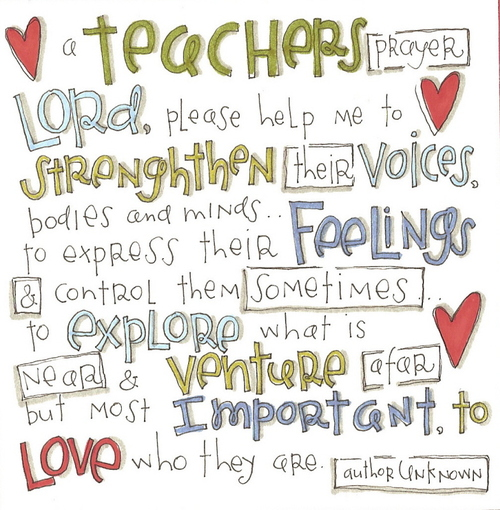 a teachers prayer
Lord, please help me to
strenghthen their voices,
bodies and minds..
to express their Feelings
& control them sometimes..
to explore what is
near & venture afar
but most Important, to
Love who they are. author unknown